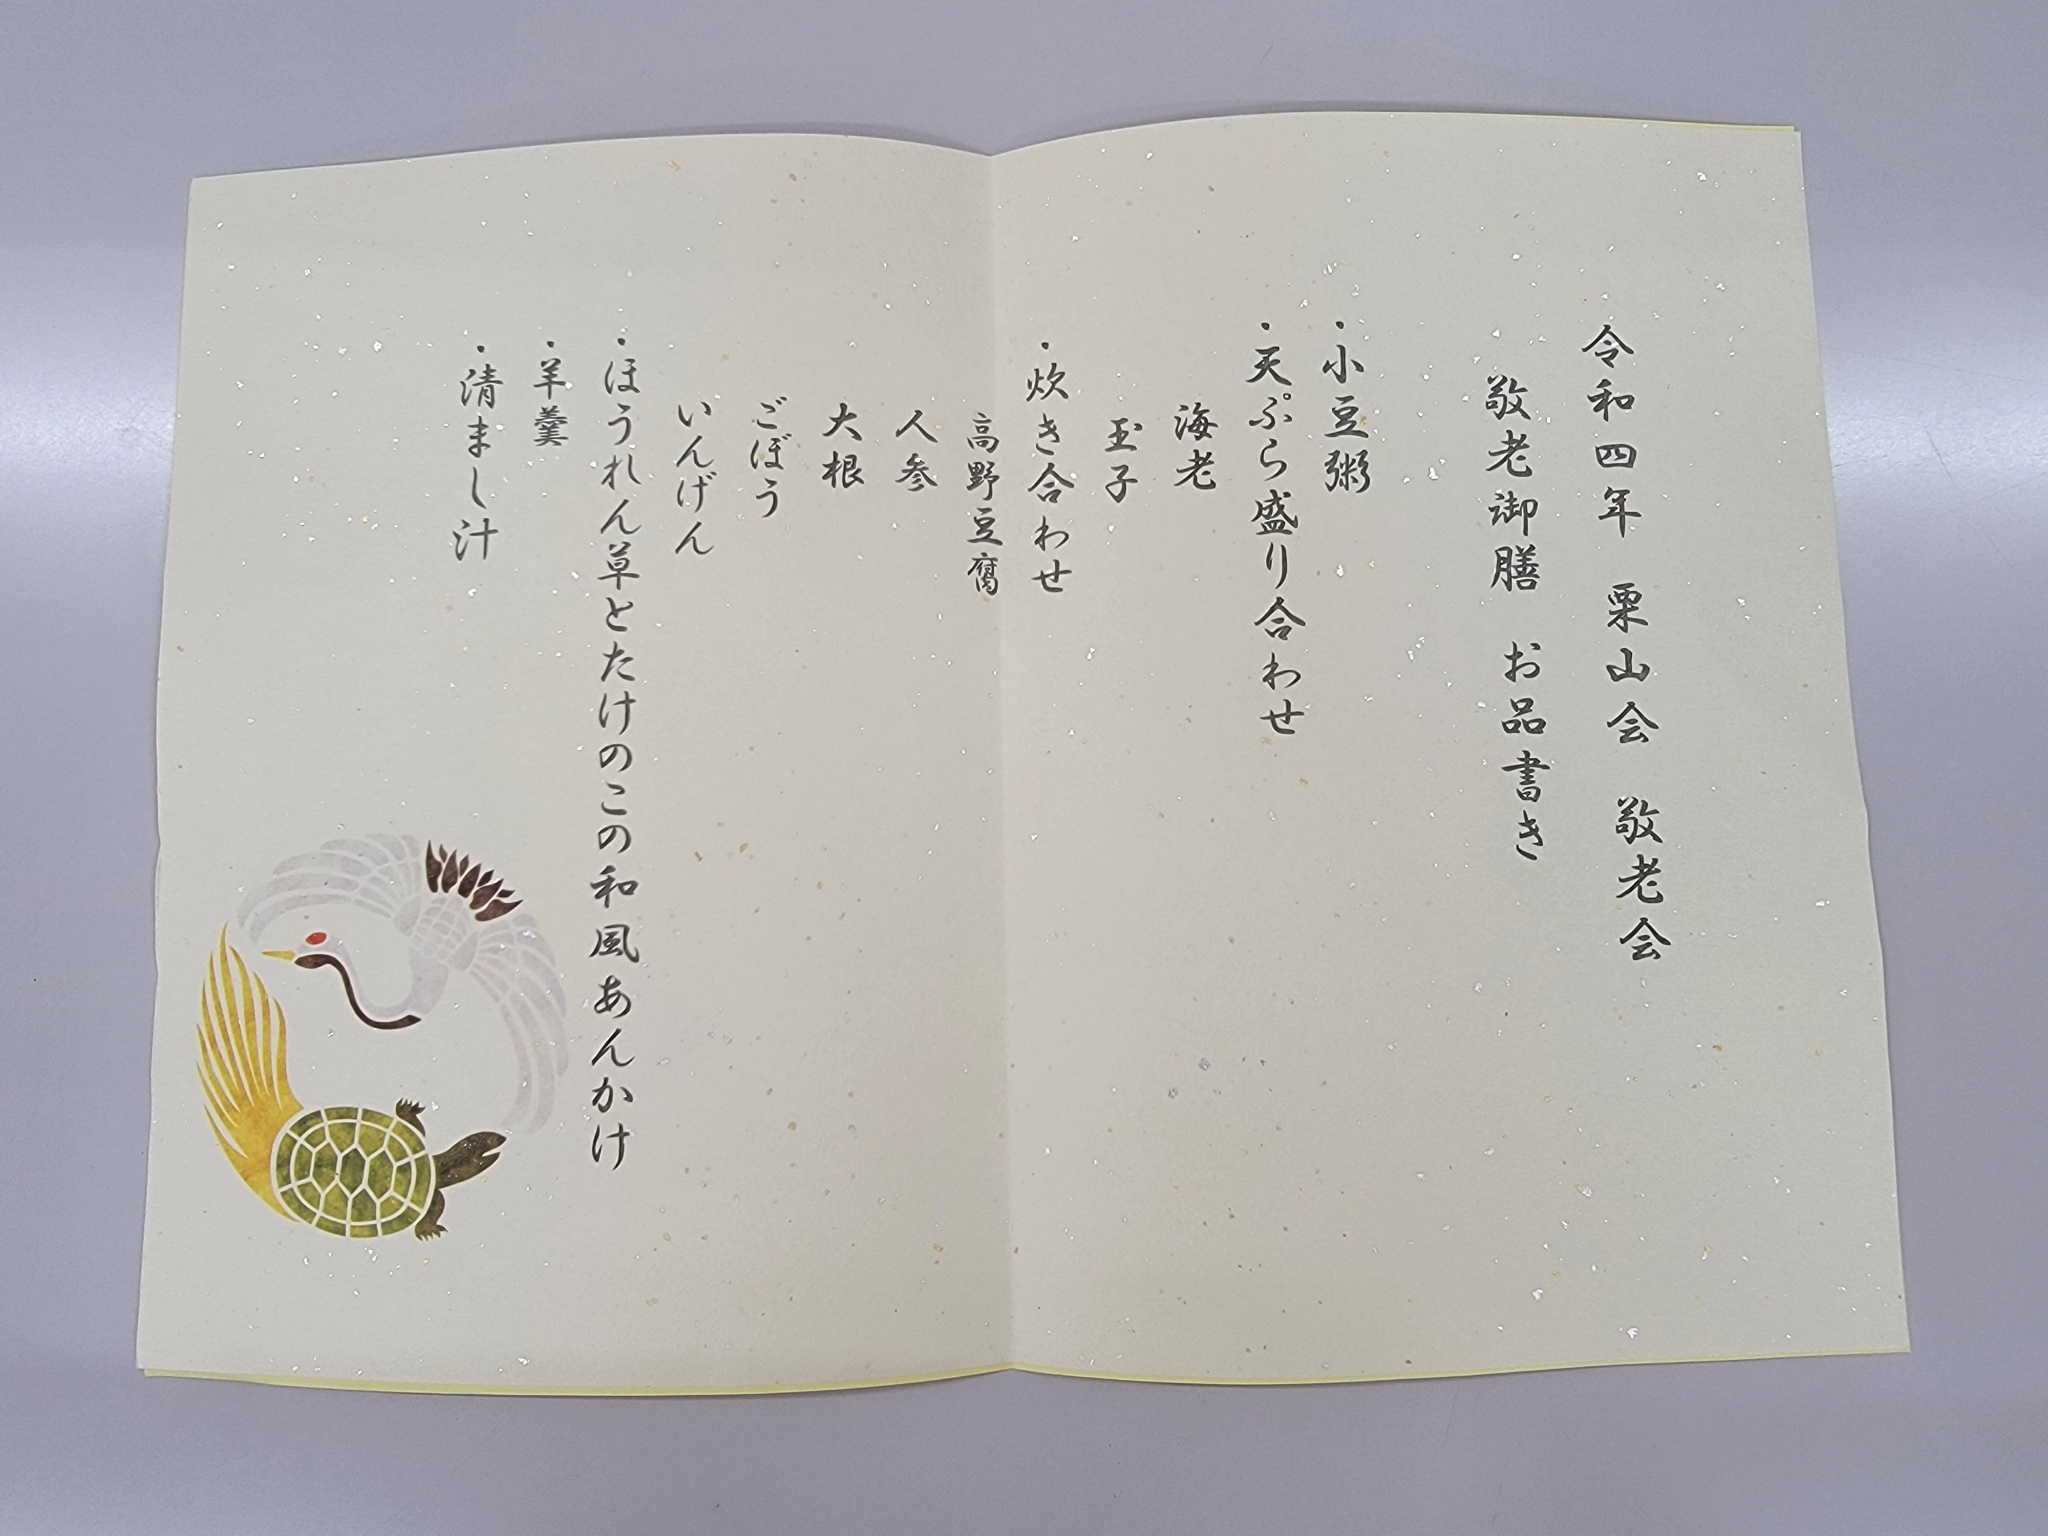 令和四年　栗山会　敬老会
敬老御膳　お品書き
・小豆粥
・天ぷら盛り合わせ
海老
玉子
・炊き合わせ
高野豆腐
人参
大根
ごぼう
いんげん
・ほうれん草とたけのこの和風あんかけ
・羊羹
・清まし汁